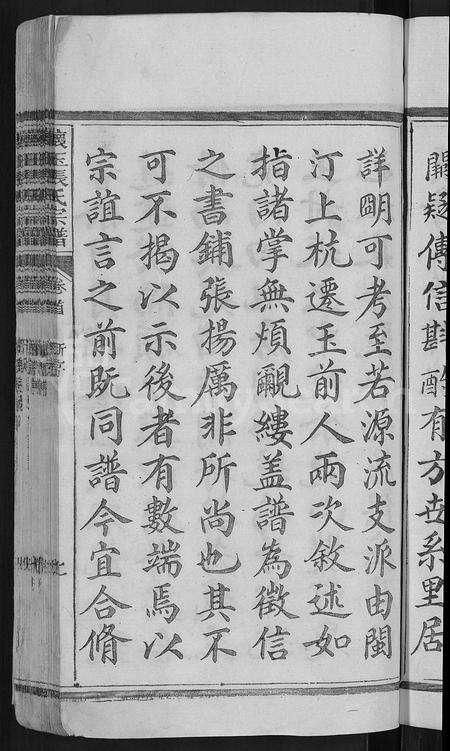 闕疑傳信斟酌有方世系里居
詳明可考至若源流支派由閩
汀上杭遷玉前人兩次敘述如
指諸掌無煩覼縷盖譜為徵信
之書鋪張揚厲非所尚也其不
可不揭以示後者有數端焉以
宗誼言之前旣同譜今宜合脩
懷玉張氏宗譜
卷首